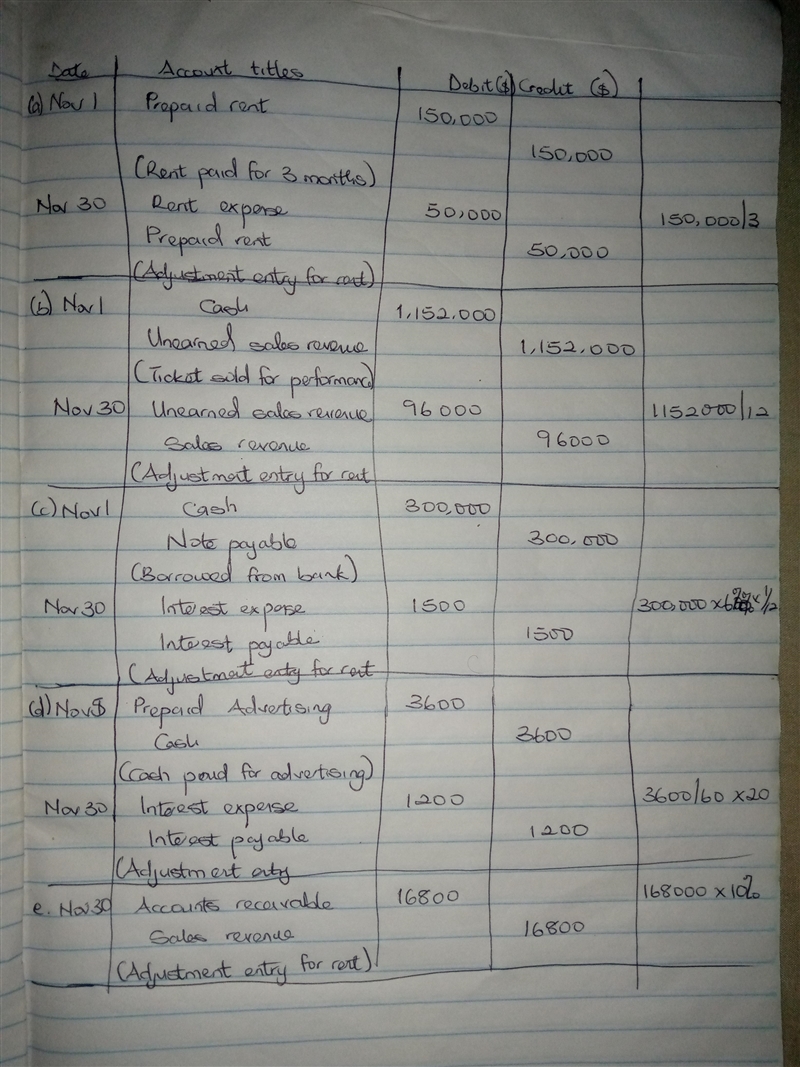 Date Account titles Debit($) Credit ($)
(a) Nov 1 Prepaid rent 150,000
150,000
(Rent paid for 3 months)
Nov 30 Rent expense 50,000 150,000/3
Prepaid rent 50,000
(Adjustment entry for rent)
(b) Nov 1 Cash 1,152,000
Unearned sales revenue 1,152,000
(Ticket sold for performance)
Nov 30 Unearned sales revenue 96000 1152000/12
Sales revenue 96000
(Adjustment entry for rent
(c) Nov 1 Cash 300,000
Note payable 300,000
(Borrowed from bank)
Nov 30 Interest expense 1500 300,000 x 6% x 1/2
Interest payable 1500
(Adjustment entry for rent
(d) Nov Prepaid Advertising 3600
Cash 3600
(Cash paid for advertising)
Nov 30 Interest expense 1200 3600/60 x20
Interest payable 1200
(Adjustment entry
e. Nov 30 Accounts receivable 16800 168000 x 10%
Sales revenue 16800
(Adjustment entry for rent)